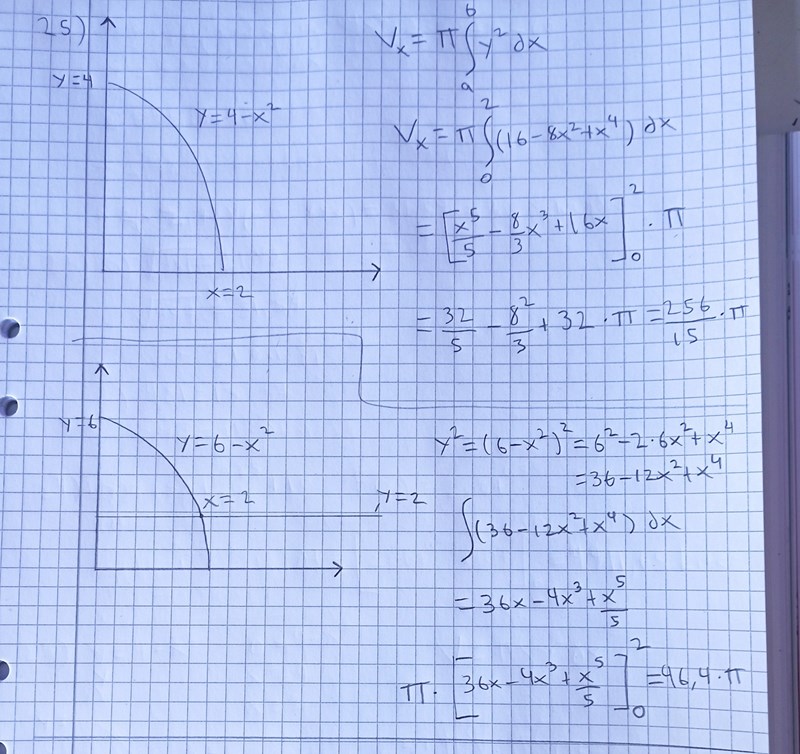 25)
V_x = π ∫_a^b y² dx
y=4
y=4-x²
V_x = π ∫_0^2 (16-8x²+x⁴) dx
= [x⁵/5 - 8/3 x³ + 16x]_0^2 · π
x=2
= 32/5 - 8²/3 + 32 · π = 256/15 · π
y=6
y=6-x²
y² = (6-x²)² = 6²-2·6x²+x⁴
= 36-12x²+x⁴
x=2
y=2
∫(36-12x²+x⁴) dx
= 36x-4x³+x⁵/5
π · [36x-4x³+x⁵/5]_0^2 = 46,4·π